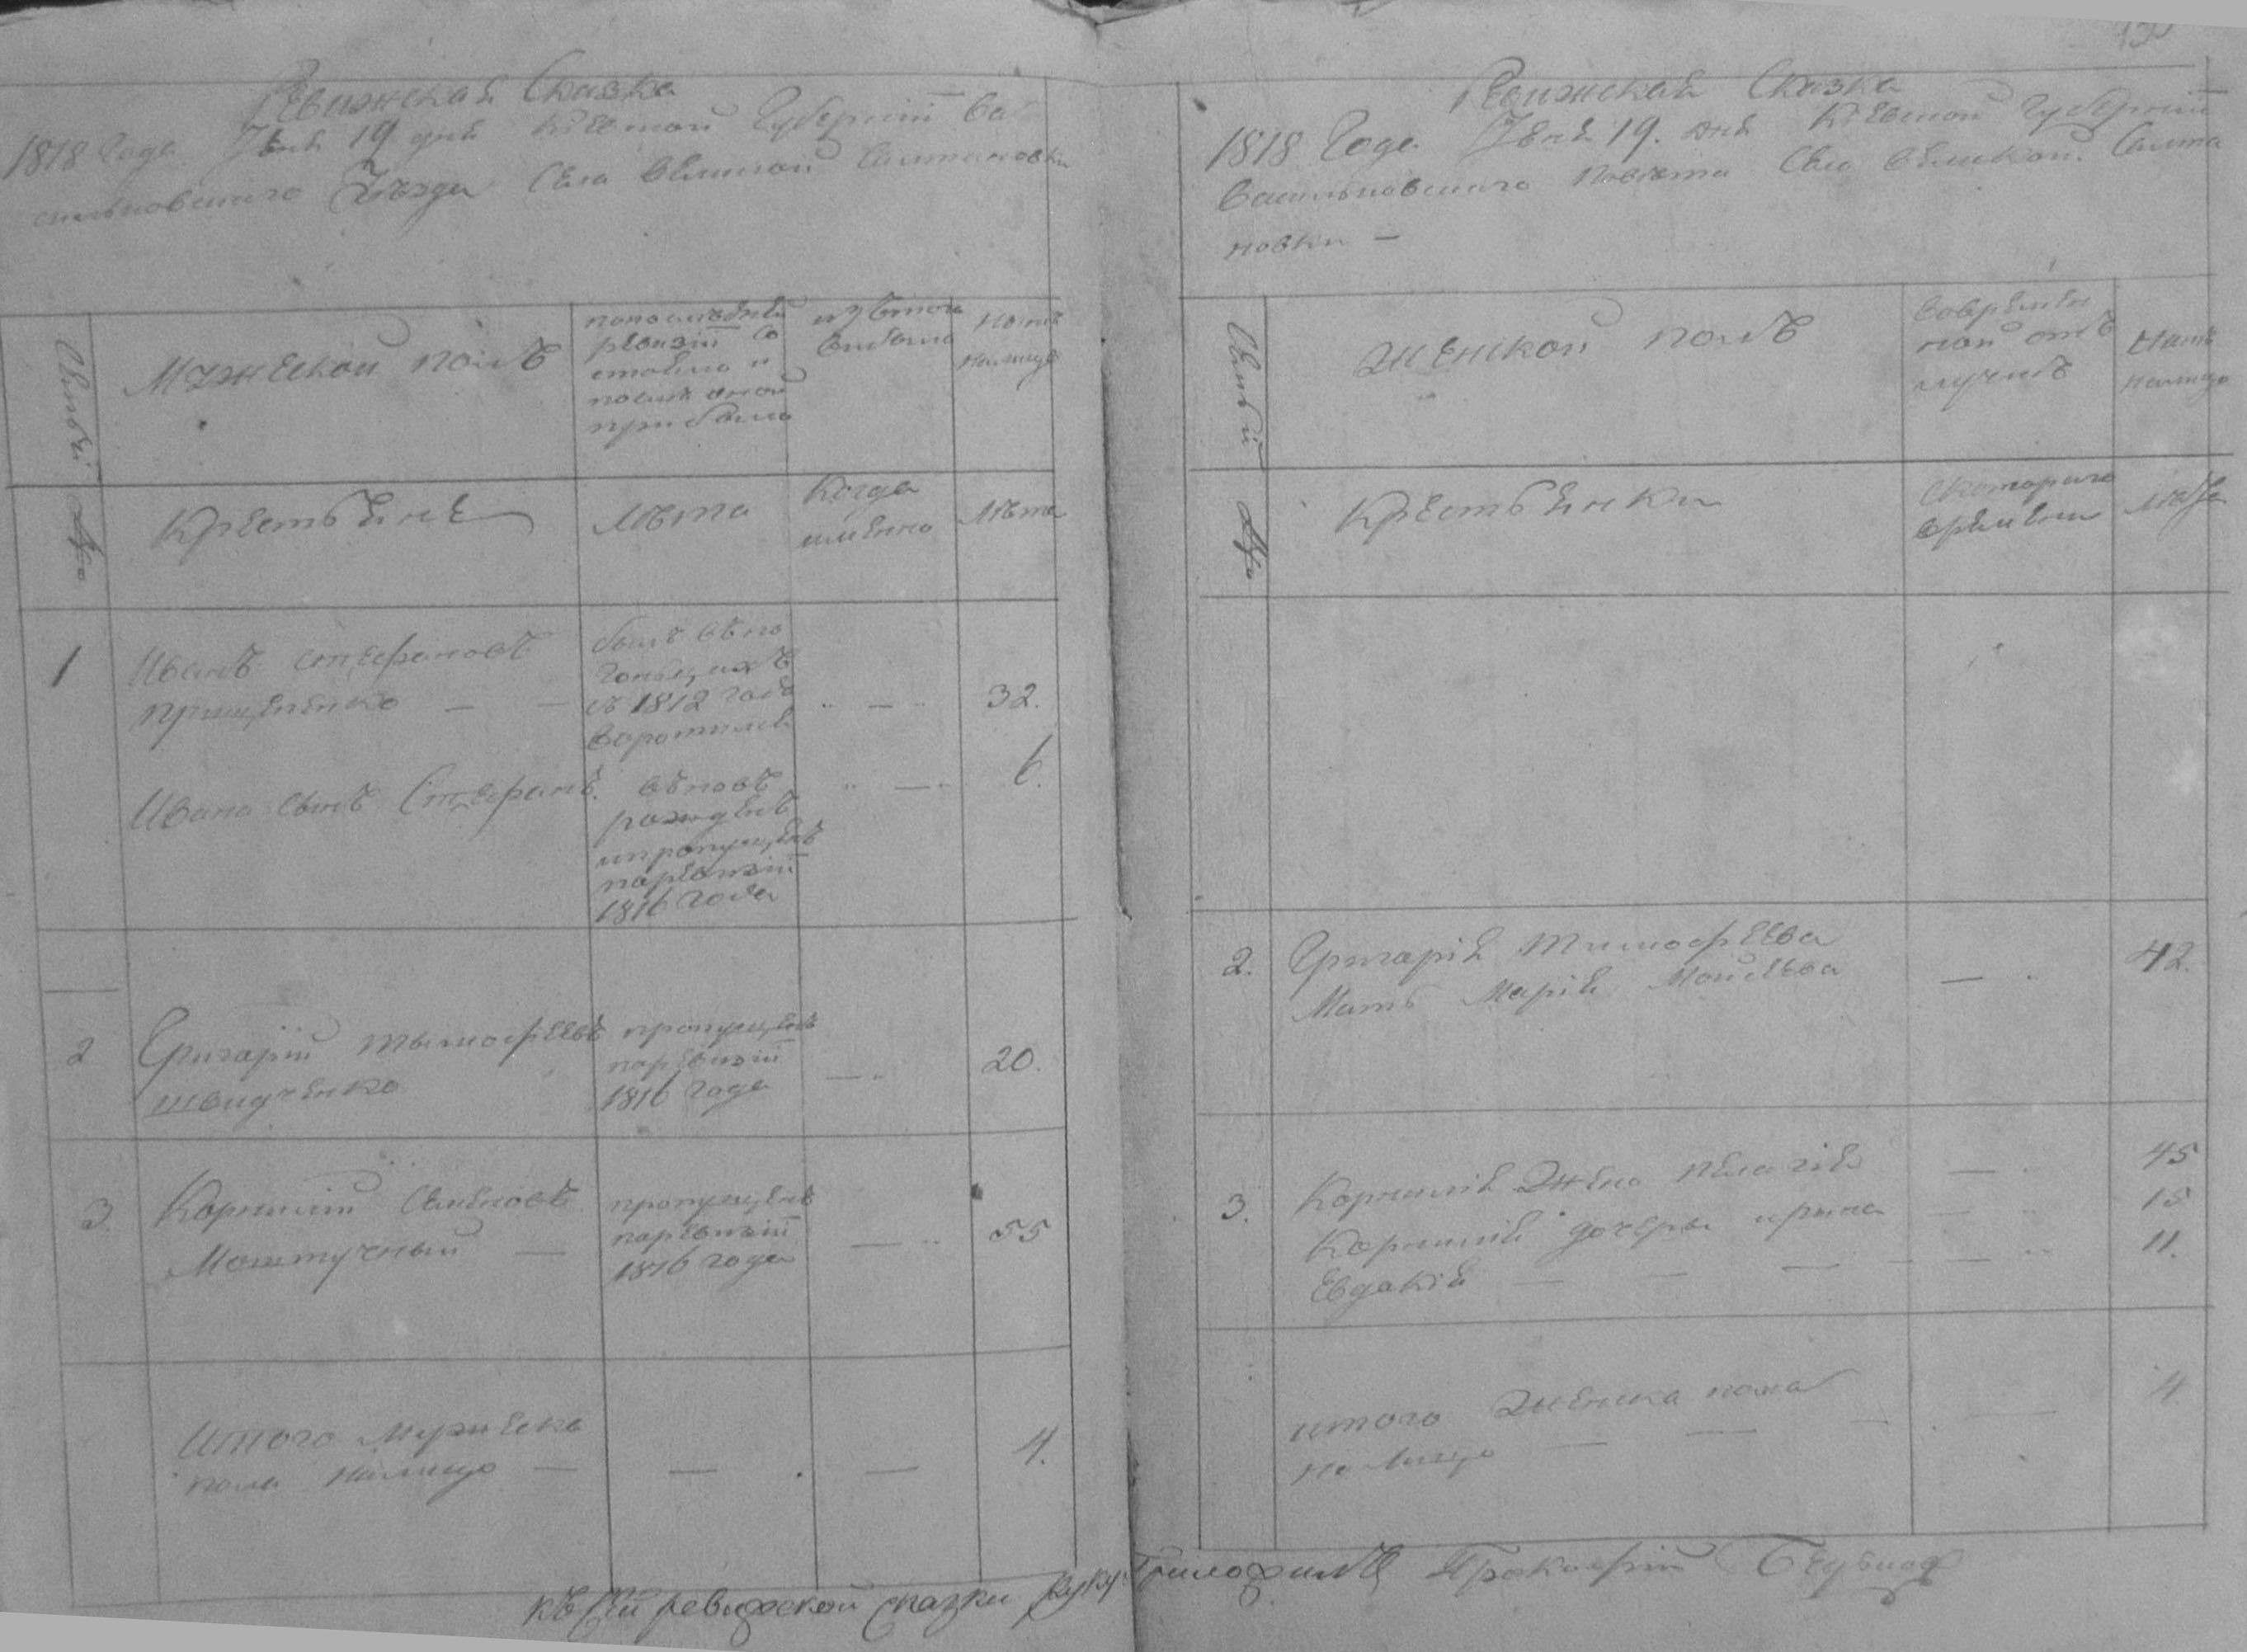 Ревижская Сказка
1818 Года Іюня 19 дня Кіевской Губерніи Ва
сильковскаго Уезда Села Великой Салтановки
Семьи №
Мужеской полъ
по последней
ревизіи со
стояло и
после оной
прибыло
изътого
выбыло
Ныне
налицо
Крестьяне
Лѣта
Когда
именно
Лѣта
1
Иванъ Стефановъ
Прищепенко — —
былъ въ по
гоньщикъ
съ 1812 года
воротился
32.
Ивана сынъ Стефанъ
вновь
рожденъ
и пропущенъ
по ревизіи
1816 года
6.
2
Григорій Тымофеевъ
Швидченко
пропущенъ
по ревизіи
1816 года
20.
3.
Корнилій Семеновъ
—
пропущенъ
по ревизіи
1816 года
55
Итого Мужеска
пола налицо —
4.
Ревижская Сказка
1818 Года Іюня 19. дня Кіевской Губерніи
Васильковскаго Повета Села Великой Салта
новки —
Семьи №
Женской полъ
Во времен
ной от
лучке
Ныне
налицо
Крестьянки
С котораго
времени
Лѣта
2.
Григорія Тимофеева
Мать Марія Моисеева
42.
3.
Корнилія Жена Пелагія
45
Корнилія дочеры Ирина
15
Евдокія
11.
итого Женска пола
на лицо
4
Къ сей ревизской сказки руку приложилъ Прокофій